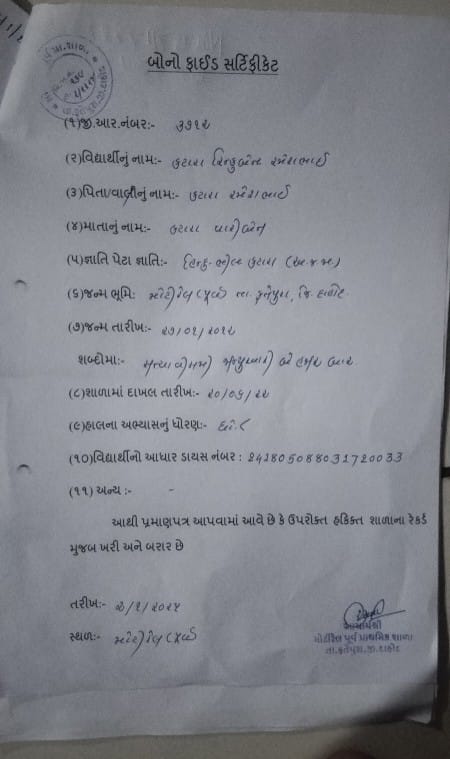 બોનો ફાઈડ સર્ટિફીકેટ
(૧)જી.આર.નંબર:- ૩૭૧૨
(૨)વિદ્યાર્થીનું નામ:- કટારા રમેશભાઈ
(૩)પિતા/વાલીનું નામ:- કટારા રમેશભાઈ
(૪)માતાનું નામ:- કટારા
(૫)જ્ઞાતિ પેટા જ્ઞાતિ:- હિન્દુ-ભીલ કટારા (અ.જ.જા)
(૬)જન્મ ભૂમિ: તા. ફતેપુરા, જિ. દાહોદ
(૭)જન્મ તારીખ:- ૨૭/૦૧/૨૦૧૨
શબ્દોમા:- સત્યાવીસમી જાન્યુઆરી બે હજાર બાર
(૮)શાળામાં દાખલ તારીખ:- ૨૦/૦૬/૨૨
(૯)હાલના અભ્યાસનું ધોરણ:-
(૧૦)વિદ્યાર્થીનો આધાર ડાયસ નંબર : 242805088031720033
(૧૧) અન્ય :- -
આથી પ્રમાણપત્ર આપવામાં આવે છે કે ઉપરોક્ત હકિકત શાળાના રેકર્ડ
મુજબ ખરી અને બરાર છે
તરીખ:- ૨/૧/૨૦૨૫
સ્થળ:-
આચાર્યશ્રી
પૂર્વ પ્રાથમિક શાળા
તા.ફતેપુરા.જી.દાહોદ